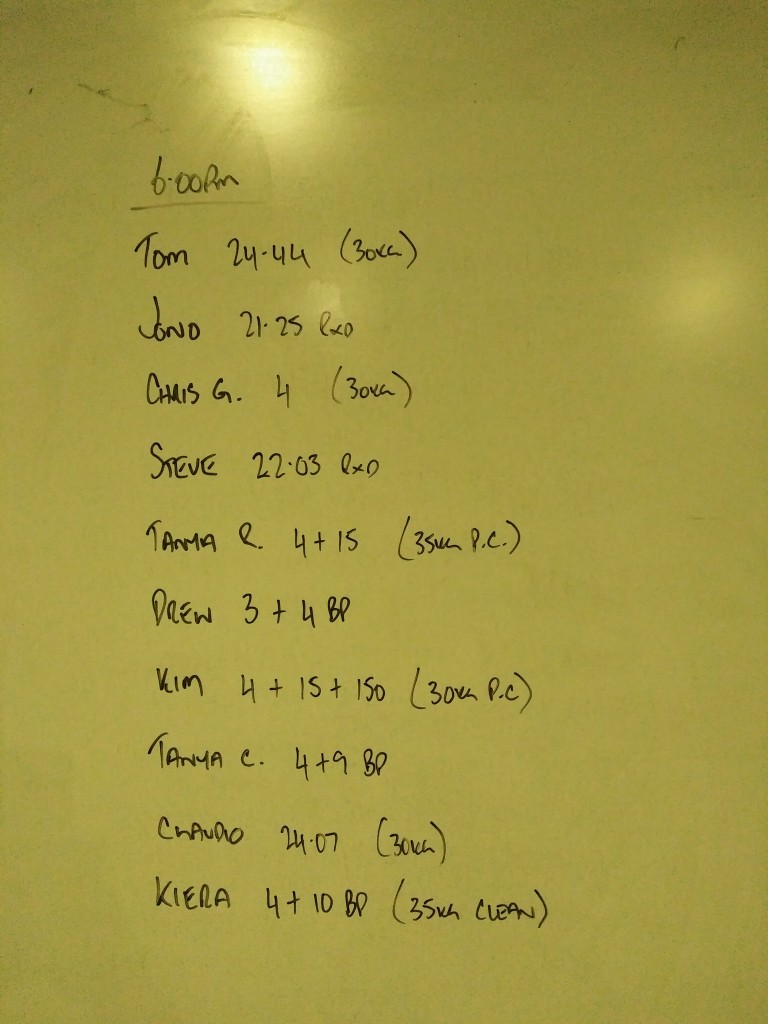 6.00PM
TOM 24.44 (30KG)
JONO 21.25 RXD
CHRIS G. 4 (30KG)
STEVE 22.03 RXD
TANYA R. 4+15 (35KG P.C.)
DREW 3 + 4 BP
KIM 4 + 15 + 150 (30KG P.C)
TANYA C. 4+9 BP
CLAUDIO 24.07 (30KG)
KIERA 4 + 10 BP (35KG CLEAN)